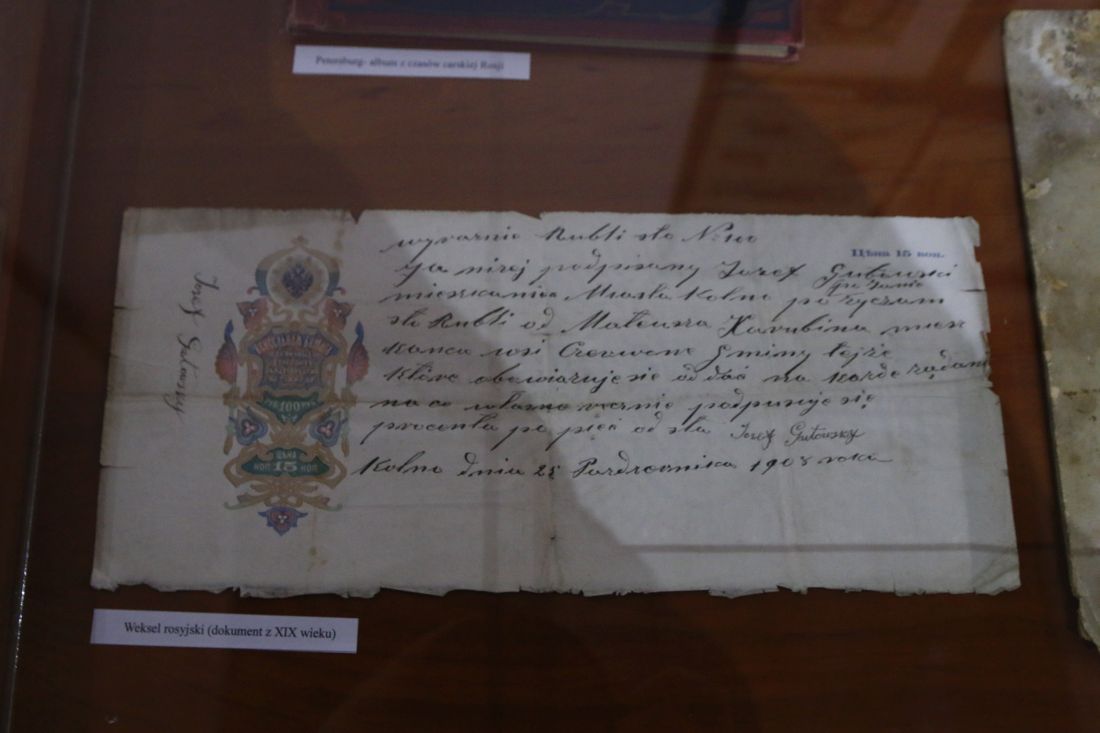 Petersburg- album z czasów carskiej Rosji
wyraznie Rubli sto № 100
Цѣна 15 коп.
Ja nirej podpisany Jozef Gutowski
mieszkaniec Miasta Kolno pozyczam
sto Rubli od Mateusza Karubina miesz
kanca wsi Czerwone Gminy tejże
które obowiązuje się oddać na každe rządani
na co własno ręcznie podpisuje się
procenta po pięć od sta Jozef Gutowsky
Kolno dnia 25 Pazdzernika 1908 roku
Jozef Gutowsky
ВЕКСЕЛЬНАЯ БУМАГА
100 РУБ
ЦѢНА
КОП 15 КОП
Weksel rosyjski (dokument z XIX wieku)